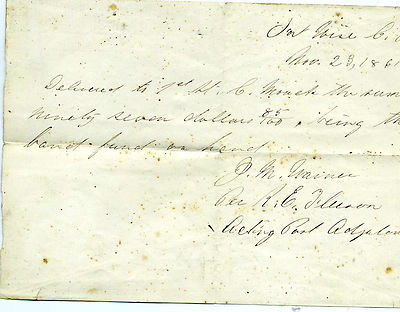 Fort Wise C.
Nov. 23, 1861
Delivered to 1st Lt. C. the sum
ninety seven dollars 85/100, being the
band fund on hand
J. M. Warner
Per R. E.
Acting Post Adjutan